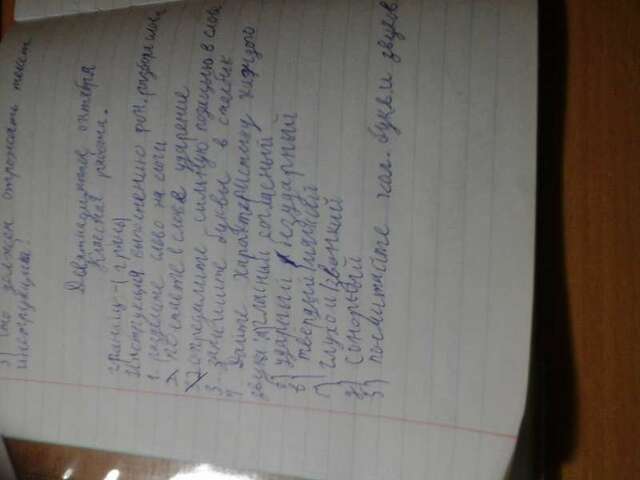 3) Что должен отрожать текст
инструкции?
Девятнадцатое октября
Класная работа.
границ -( грань)
Инструкция выполнению фон. разбора слова
1. разделите слово на слоги
2. поставте в слове ударение
3. определите сильную позицыю в слове
3. запишите буквы в столбик
4. Дайте характеристику каждого
звука: а) гласный согласный
б) ударный / безударный
в) твердый/мягкий
г) глухой/звонкий
д) сонорный
5) посчитайте кол. букв и звуков.